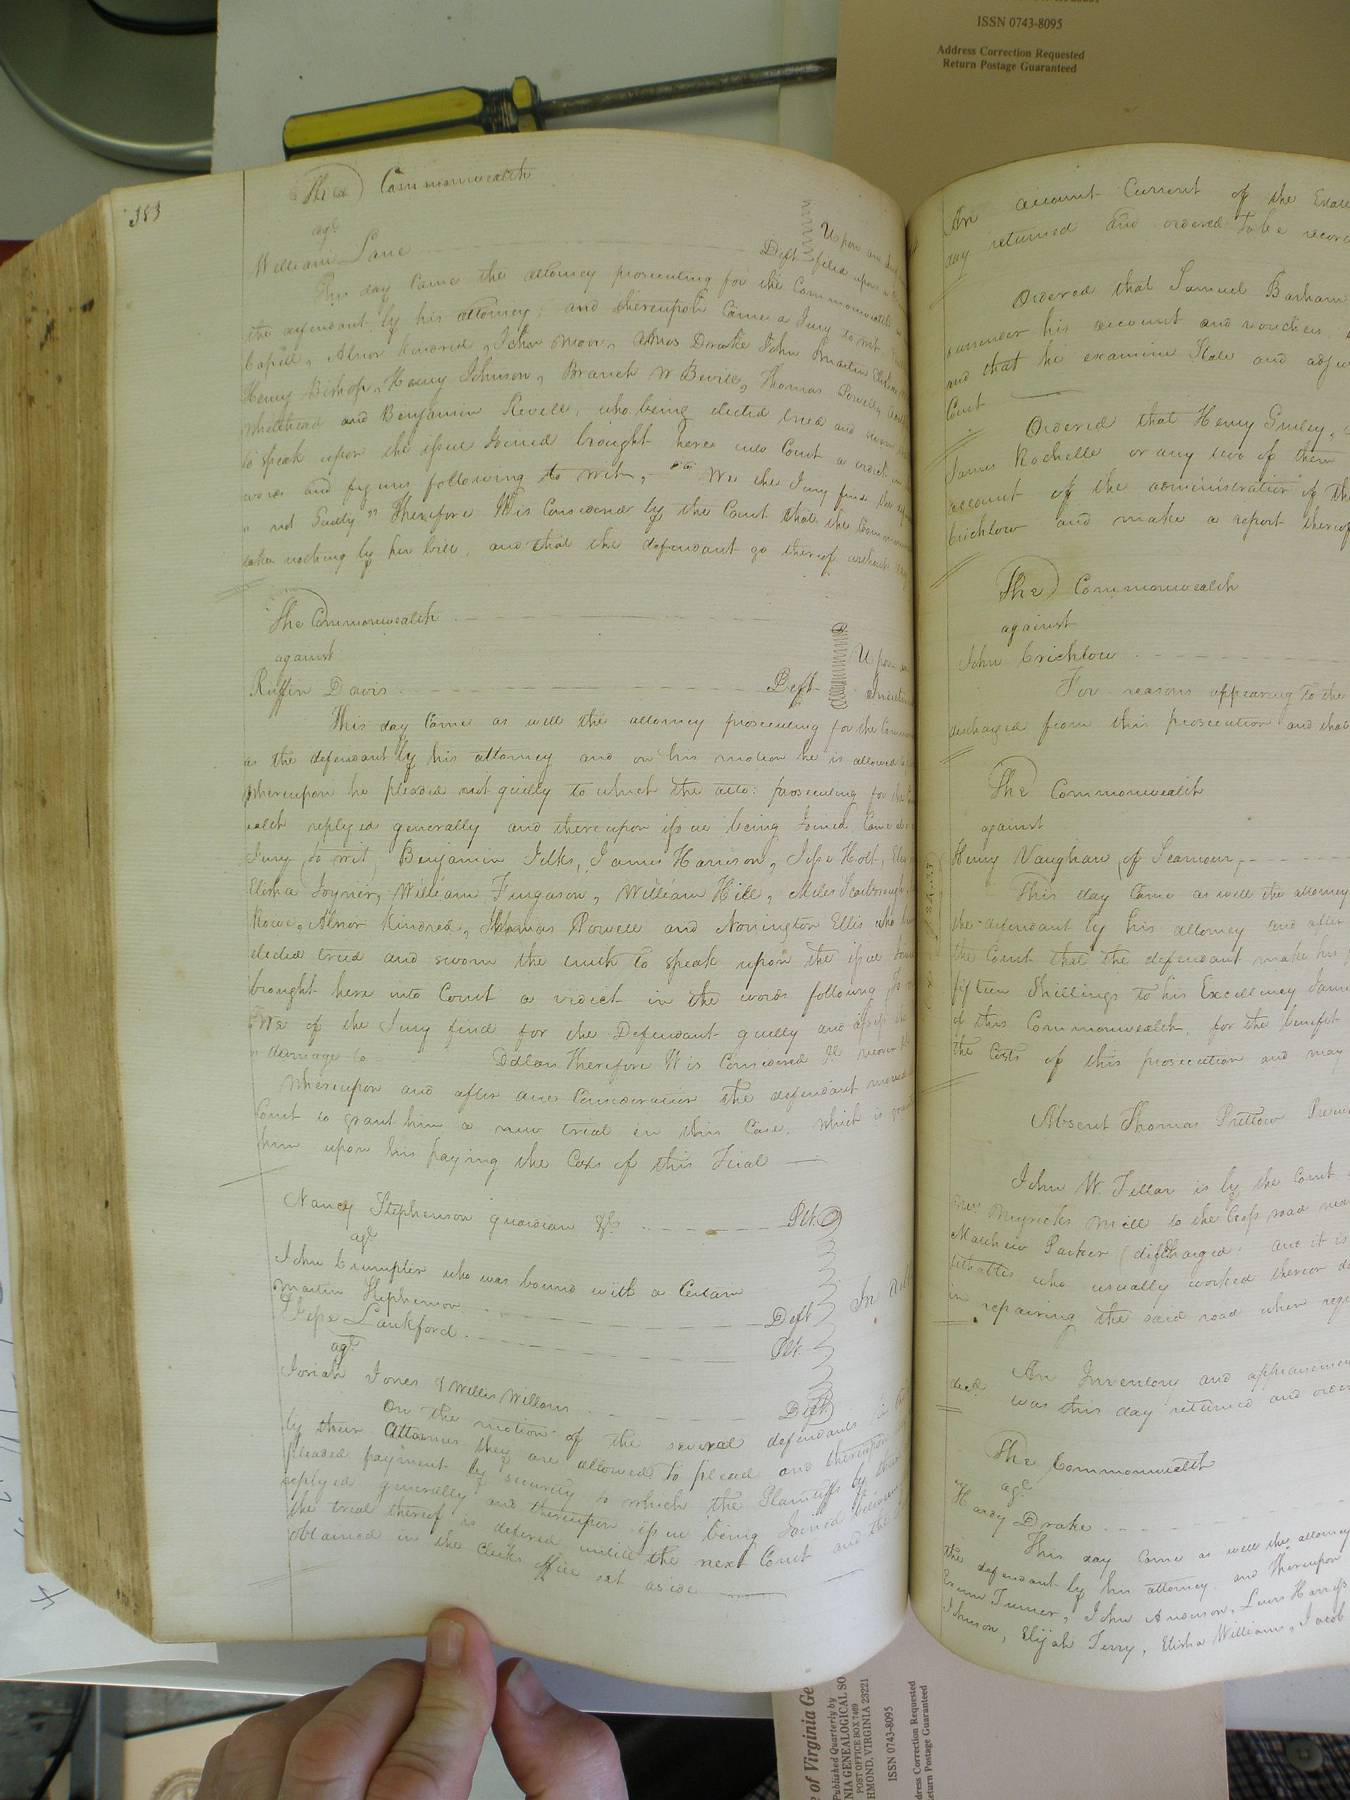 ISSN 0743-8095
Address Correction Requested
Return Postage Guaranteed
353
The Commonwealth
agt
William Lane Deft
Upon an
filed upon
This day Came the attorney prosecuting for the Commonwealth
the defendant by his attorney; and thereupon Came a Jury to wit,
Abner Kindred, John Moore, Amos Drake John Martin
Henry Bishop, Henry Johnson, Branch W Bevill, Thomas Powell,
Whitehead and Benjamin Revell, who being elected tried and sworn
to speak upon the issue Joined brought here into Court a verdict
words and figures following to wit, We the Jury find the
" not Guilty" Therefore It is Considered by the Court that the Common
take nothing by her bill, and that the defendant go thereof without
The Commonwealth
against
Ruffin Davis Deft
Upon an
This day Came as well the attorney prosecuting for the Common
as the defendant by his attorney and on his motion he is allowed
Whereupon he pleaded not guilty to which the atto: prosecuting for the
ealth replyed generally and thereupon issue being Joined, Came
Jury to wit, Benjamin Jelks, James Harrison, Jesse Holt,
Elisha Joyner, William Ferguson, William Hill, Miles Scarborough,
Rowe, Abner Kindred, Thomas Powell and Norrington Ellis who
elected tried and sworn the truth to speak upon the issue
brought here into Court a virdict in the words following to
We of the Jury find for the Defendant guilty and assess
" damage to Dollars Therefore It is Considered
Whereupon and after due Consideration the defendant moved
Court to grant him a new trial in this Case, which is
him upon his paying the Costs of this Trial
Nancy Stephenson guardian &c Plt.
agt
John Crumpler who was bound with a Certain
Martin Stephenson Deft
In
Jesse Lankford Plt.
agt
Josiah Jones & Willis Williams Deft
On the motion of the several defendants
by their Attornies they are allowed to plead and thereupon
pleaded payment by security to which the Plaintiffs by their
replyed generally and thereupon issue being Joined between
the trial thereof is defered untill the next Court and the
obtained in the Clerks office set aside
An account Current of the Estate
day returned and ordered to be recor
Ordered that Samuel Barham
surrender his account and vouchers
and that he examine State and adjus
Court
Ordered that Henry Gurley,
James Rochelle or any two of them
account of the administration of the
Crichlow and make a report thereof
The Commonwealth
against
John Crichlow
For reasons appearing to the
discharged from this prosecution and that
The Commonwealth
against
Henry Vaughan of Seamour,
This day Came as well the attorney
the defendant by his attorney and after
the Court that the defendant make his
fifteen Shillings to his Excellency James
of this Commonwealth, for the benefit
the Costs of this prosecution and may
Absent Thomas Pretlow
John W. Fellar is by the Court
Myricks Mill to the Cross road near
Matthew Parker (discharged) and it is
tithables who usually worked thereon do
in repairing the said road when requ
An Inventory and appraisement
decd was this day returned and order
The Commonwealth
agt
Hardy Drake
This day Came as well the attorney
the defendant by his attorney and thereupon
Turner, John Anderson, Lewis Harriss
Johnson, Elijah Terry, Elisha Williams, Jacob
e of Virginia Ge
Published Quarterly by
NIA GENEALOGICAL SO
POST OFFICE BOX 7469
HMOND, VIRGINIA 23221
ISSN 0743-8095
Address Correction Requested
eturn Postage Guaranteed